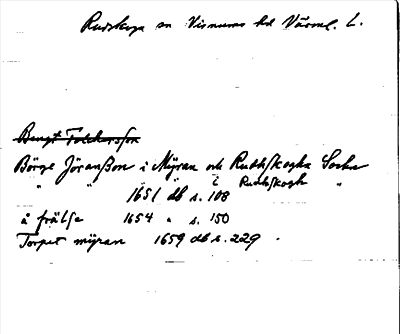 Rudskoga sn Visnums hd Värml. L.
Bengt Tolckersson
Börge Jöranßon i Myran och Rudhskogha Sockn
" " i Rudhskogh "
1651 db s. 108
å frälse 1654 " s. 150
Torpet myran 1659 db s. 229.